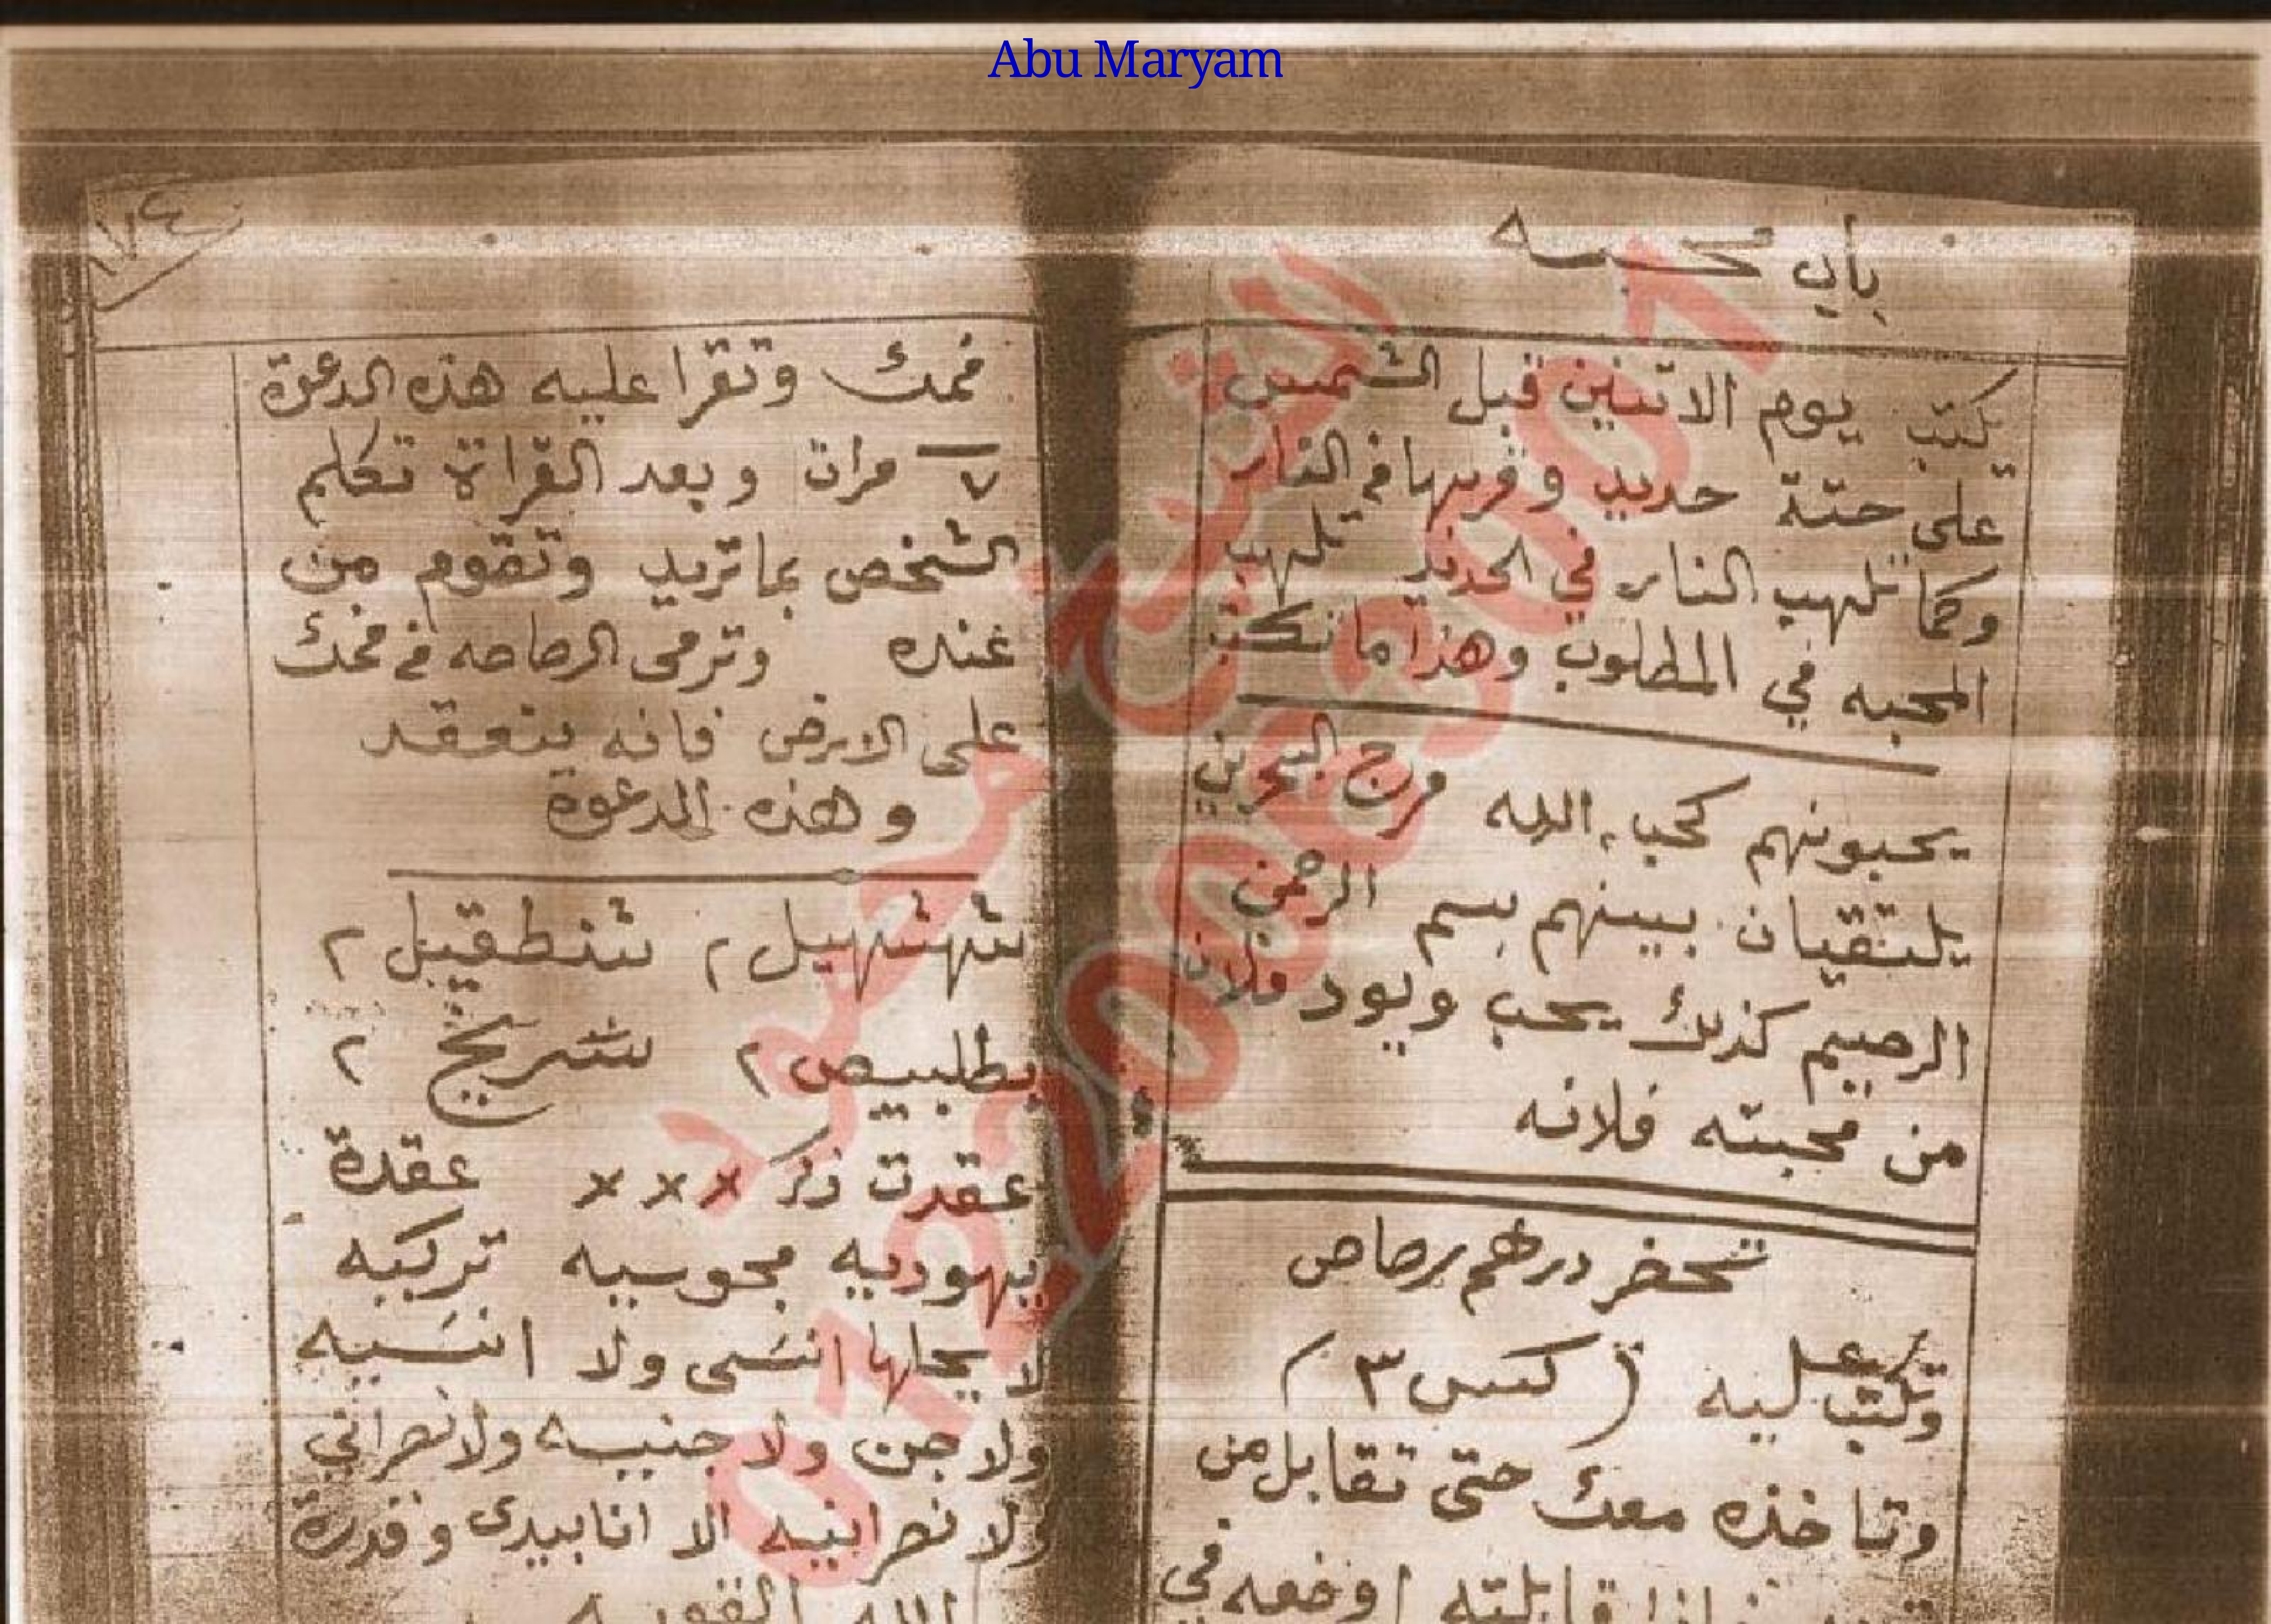 Abu Maryam
باب محبه
يكتب يوم الاثنين قبل الشمس
على حتة حديد وقربها في النار
وكما تلهب النار في الحديد تلهب
المحبه في المطلوب وهذا ما تكتب
يحبونهم كحب الله مرج البحرين
يلتقيان بينهم بسم الرحمن
الرحيم كذلك يحب ويود فلان
من محبته فلانه
تحضر درهم رصاص
وتكتب عليه ( كسس ٣ )
وتاخذه معك حتى تقابل من
فاذا قابلته اوضعه في
١٧٤
فمك وتقرا عليه هذه الدعوة
٧ مرات وبعد القراة تكلم
الشخص بما تريد وتقوم من
عنده وترمى الرصاصه في فمك
على الارض فانه ينعقد
وهذه الدعوة
شهشهيل ٢ شنطقيل ٢
بطلبيص ٢ شريخ ٢
عقدت ذكر × × × عقدة
يهوديه مجوسيه تركيه
لا يحلها انسى ولا انسيه
ولا جن ولا جنيه ولا نصراني
ولا نصرانيه الا انا بيدى وقدرة
الله
الشيخ محمود
01220083001